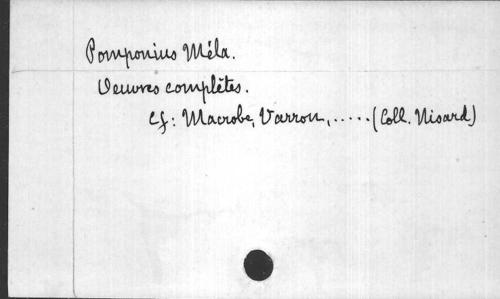 Pomponius Méla.
Oeuvres complètes.
Cf: Macrobe, Varron, ..... (Coll. Nisard)